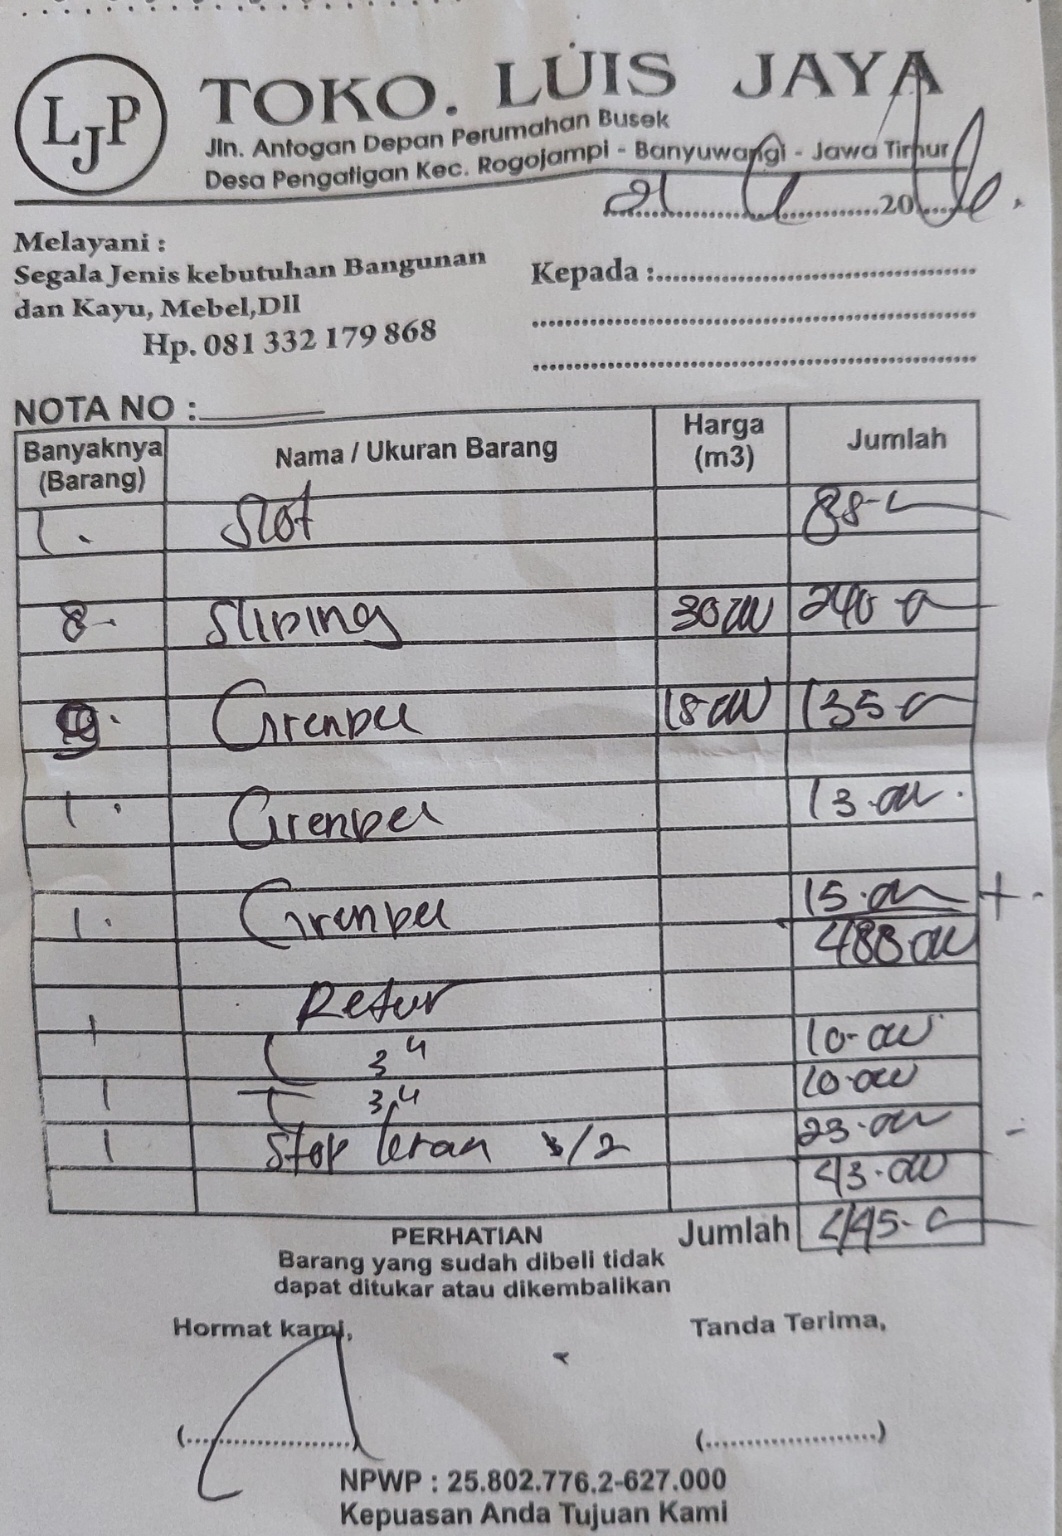 LJP
TOKO. LUIS JAYA
Jln. Antogan Depan Perumahan Busek
Desa Pengatigan Kec. Rogojampi - Banyuwangi - Jawa Timur
21 20
Melayani :
Segala Jenis kebutuhan Bangunan
dan Kayu, Mebel,Dll
Hp. 081 332 179 868
Kepada :
NOTA NO :
Banyaknya (Barang) Nama / Ukuran Barang Harga (m3) Jumlah
1. Slot 85
8 Sliping 30 000 240
15 000 135
1. 13.000
1. 15.000 +
488 000
Retur
1 3/4 10-000
1 3/4 10.000
1 Stop kran 3/2 23.000 -
43.000
Jumlah 445
PERHATIAN
Barang yang sudah dibeli tidak
dapat ditukar atau dikembalikan
Hormat kami,
Tanda Terima,
(....................)
(....................)
NPWP : 25.802.776.2-627.000
Kepuasan Anda Tujuan Kami